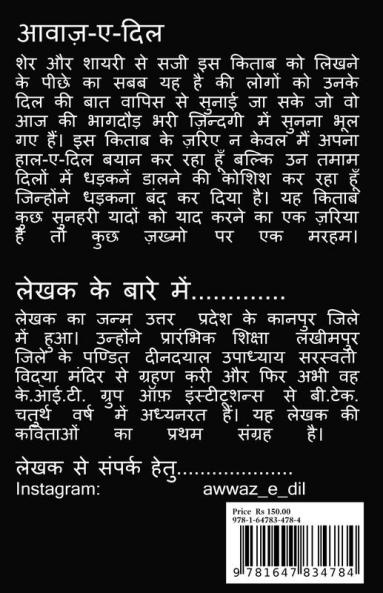 आवाज़-ए-दिल
शेर और शायरी से सजी इस किताब को लिखने
के पीछे का सबब यह है की लोगों को उनके
दिल की बात वापिस से सुनाई जा सके जो वो
आज की भागदौड़ भरी ज़िन्दगी में सुनना भूल
गए हैं। इस किताब के ज़रिए न केवल मैं अपना
हाल-ए-दिल बयान कर रहा हूँ बल्कि उन तमाम
दिलों में धड़कनें डालने की कोशिश कर रहा हूँ
जिन्होंने धड़कना बंद कर दिया है। यह किताब
कुछ सुनहरी यादों को याद करने का एक ज़रिया
है तो कुछ ज़ख्मो पर एक मरहम।
लेखक के बारे में.............
लेखक का जन्म उत्तर प्रदेश के कानपुर जिले
में हुआ। उन्होंने प्रारंभिक शिक्षा लखीमपुर
जिले के पण्डित दीनदयाल उपाध्याय सरस्वती
विद्या मंदिर से ग्रहण करी और फिर अभी वह
के.आई.टी. ग्रुप ऑफ़ इंस्टीटूशन्स से बी.टेक.
चतुर्थ वर्ष में अध्यनरत हैं। यह लेखक की
कविताओं का प्रथम संग्रह है।
लेखक से संपर्क हेतु....................
Instagram: awwaz_e_dil
Price Rs 150.00
978-1-64783-478-4
9 781647 834784